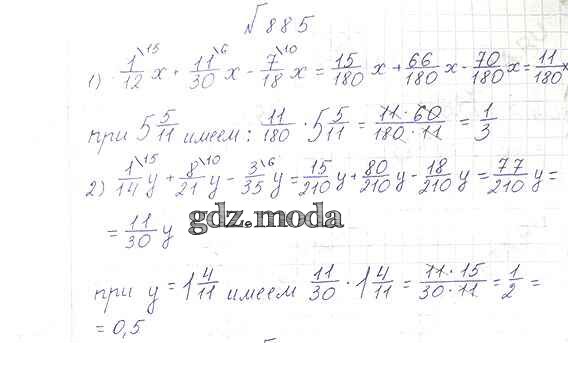 №885
1) 1\15/12 x + 11\6/30 x - 7\10/18 x = 15/180 x + 66/180 x - 70/180 x = 11/180 x
при 5 5/11 имеем: 11/180 · 5 5/11 = 11·60/180·11 = 1/3
2) 1\15/14 y + 8\10/21 y - 3\6/35 y = 15/210 y + 80/210 y - 18/210 y = 77/210 y =
= 11/30 y
gdz.moda
при y = 1 4/11 имеем 11/30 · 1 4/11 = 11·15/30·11 = 1/2 =
= 0,5